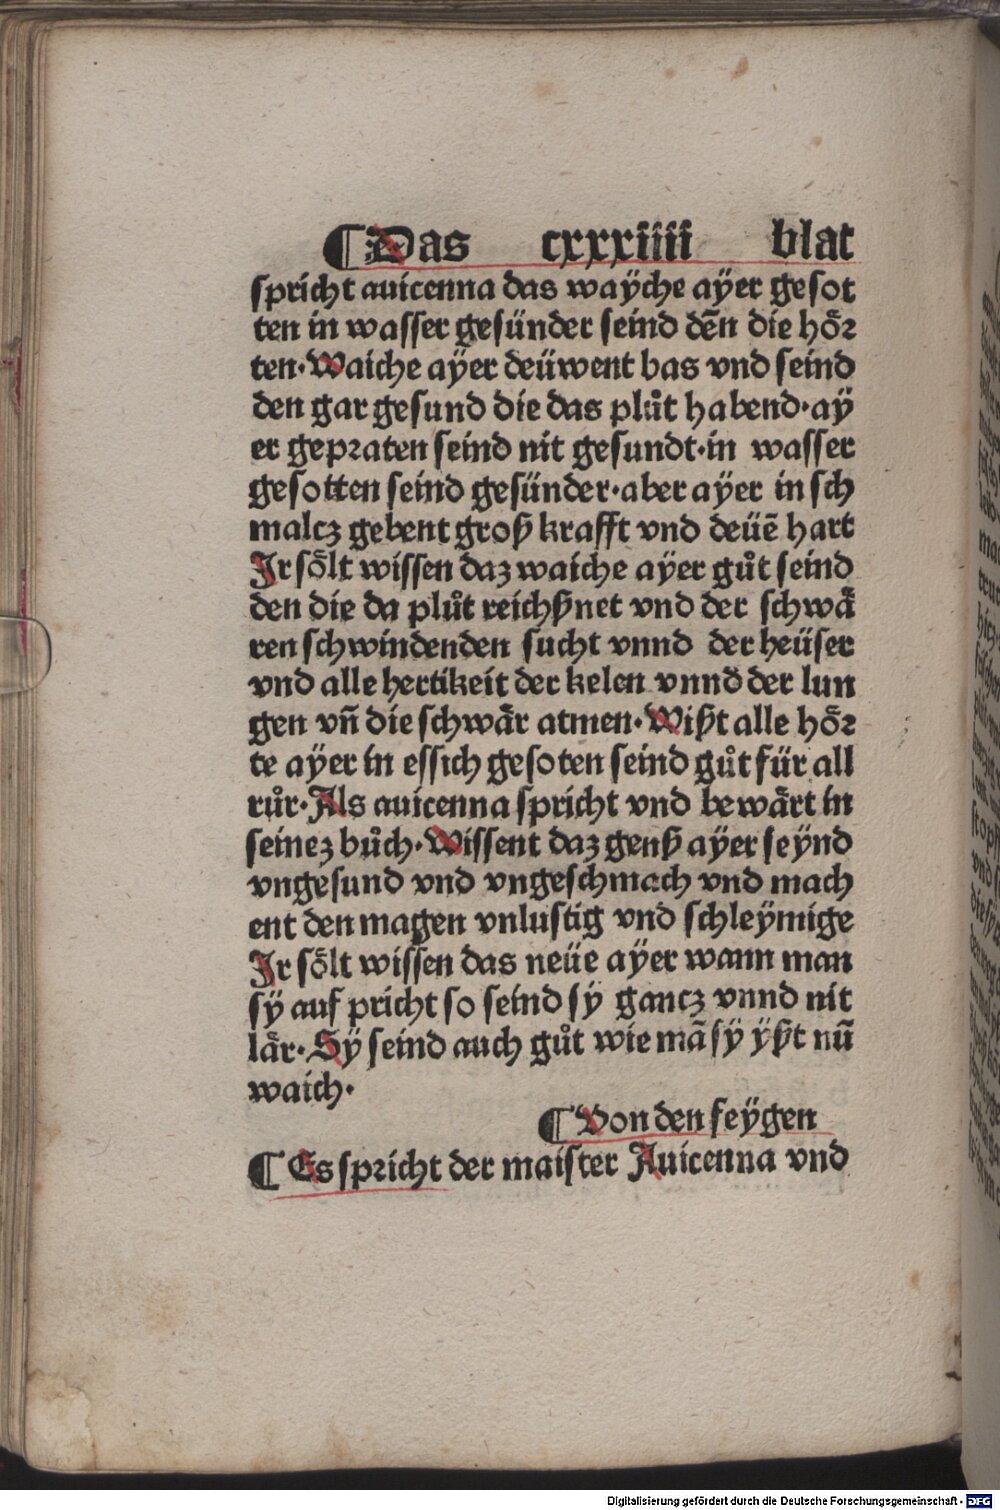 ¶Das cxxxiiii blat
spricht auicenna das wayche ayer gesot
ten in wasser gesünder seind dēn die hör
ten·Waiche ayer deüwent bas vnd seind
den gar gesund die das plůt habend·aÿ
er gepraten seind nit gesundt·in wasser
gesotten seind gesünder·aber ayer in sch
malcz gebent groß krafft vnd deüē hart
Ir sölt wissen daz waiche ayer gůt seind
den die da plůt reichßnet vnd der schwä
ren schwindenden sucht vnnd der heüser
vnd alle hertikeit der kelen vnnd der lun
gen vñ die schwär atmen·Wißt alle hör
te aÿer in essich gesoten seind gůt für all
růr·Als auicenna spricht vnd bewärt in
seinez bůch·Wissent daz genß aÿer seÿnd
vngesund vnd vngeschmach vnd mach
ent den magen vnlustig vnd schleÿmige
Ir sölt wissen das neüe aÿer wann man
sÿ auf pricht so seind sÿ gancz vnnd nit
lär·Sÿ seind auch gůt wie mā sÿ ÿßt nū
waich·
¶Von den feÿgen
¶Es spricht der maister Auicenna vnd
Digitalisierung gefördert durch die Deutsche Forschungsgemeinschaft - DFG